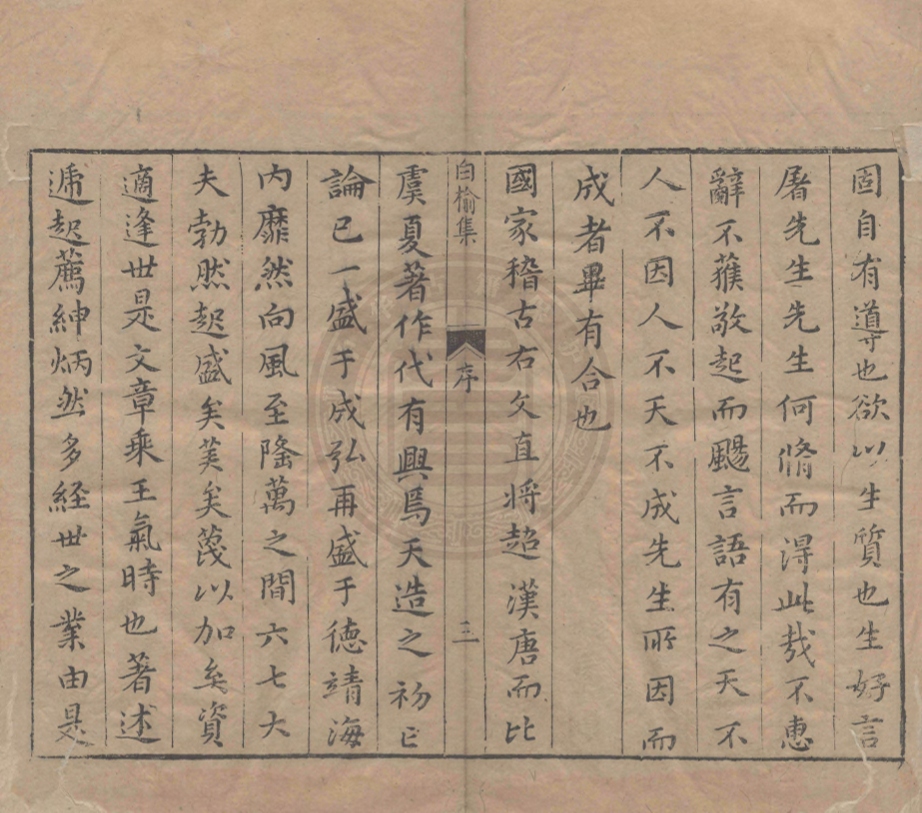 固自有導也欲以生質也生好言
屠先生先生何脩而淂此㦲不惠
辭不蒦敬起而颺言語有之天不
人不因人不天不成先生所因而
成者畢有合也
國家稽古右文直将超漢唐而比
白榆集
序
三
虞夏著作代有興焉天造之初亡
論已一盛于成弘再盛于徳靖海
内靡然向風至隆萬之間六七大
夫勃然起盛矣美矣蔑以加矣資
適逢世是文章乘王氣時也著述
遞起薦紳炳然多経世之業由是